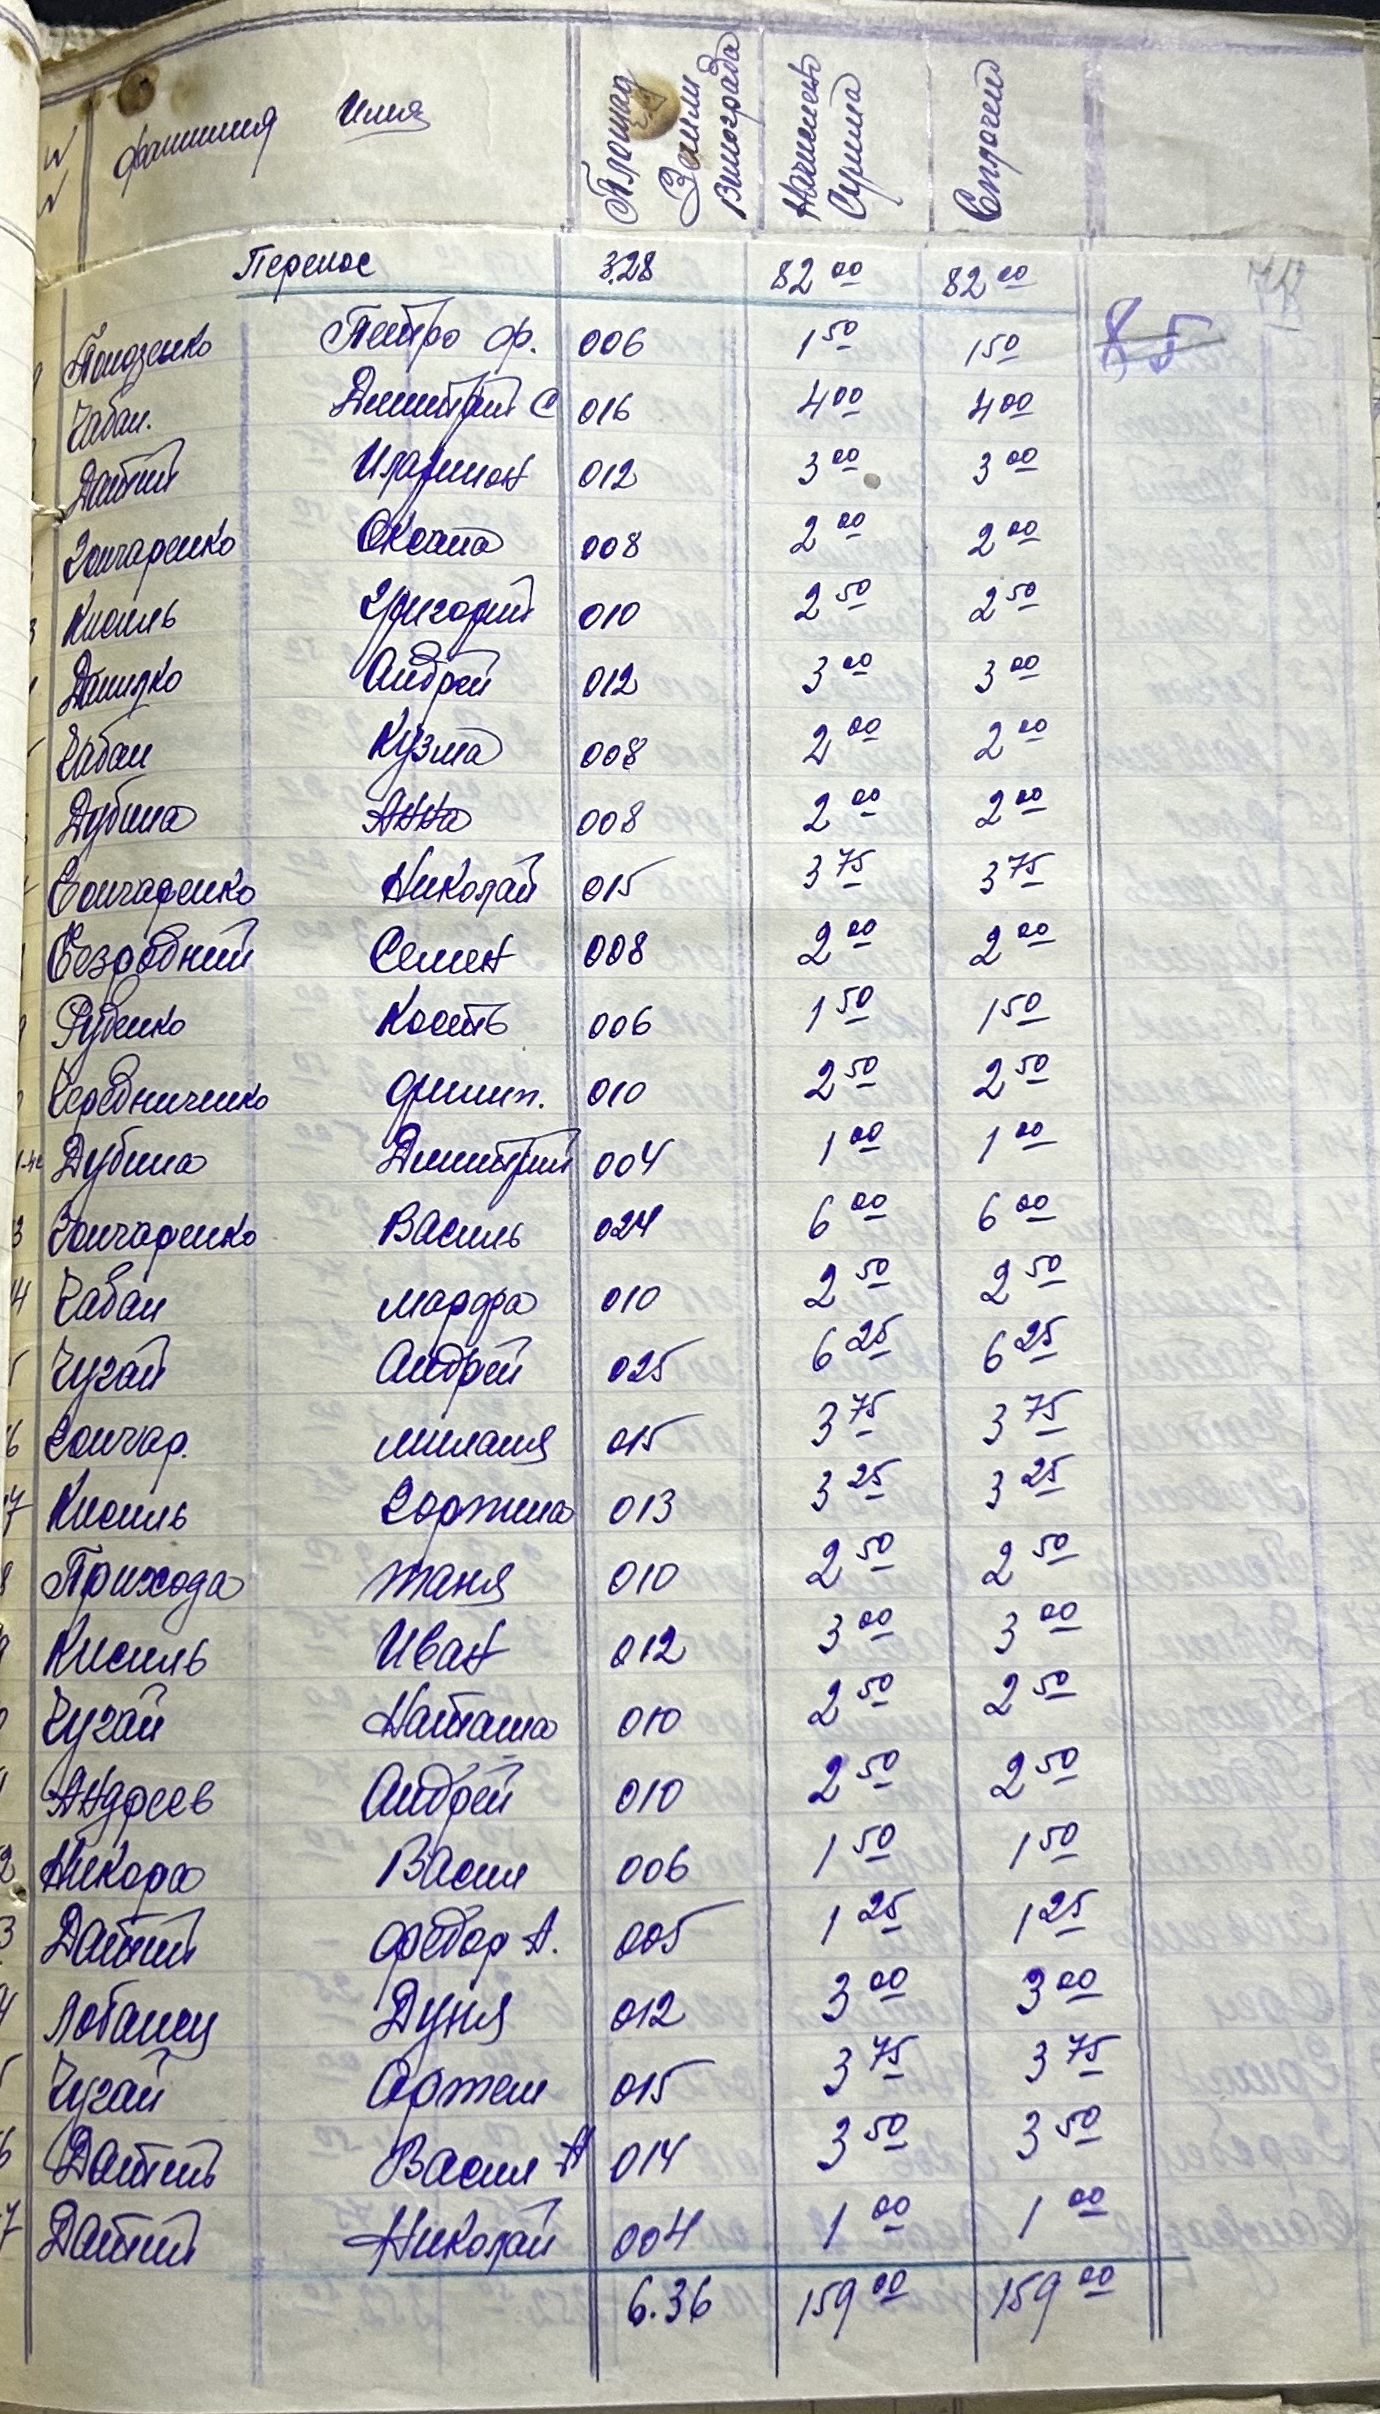 NN Фамилия Имя Площад Земли Винограда Начислен Сума Сплочено
Перенос 3.28 82 00 82 00
Петро Ф. 006 1 50 1 50 85
Чабан. Дмитрий С 016 4 00 4 00
Датий Иларион 012 3 00 3 00
Гончаренко Оксана 008 2 00 2 00
3 Кисиль Григорий 010 2 50 2 50
Данилко Андрей 012 3 00 3 00
Чабан Кузма 008 2 00 2 00
Дубина Анна 008 2 00 2 00
Гончаренко Николай 015 3 75 3 75
Безродний Семен 008 2 00 2 00
Руденко Кость 006 1 50 1 50
Чередниченко Филип. 010 2 50 2 50
Дубина Дмитрий 004 1 00 1 00
3 Гончаренко Василь 024 6 00 6 00
4 Чабан Марфа 010 2 50 2 50
5 Чугай Андрей 025 6 25 6 25
6 Гончар. Милания 015 3 75 3 75
7 Кисиль Горпина 013 3 25 3 25
8 Прихода Таня 010 2 50 2 50
9 Кисиль Иван 012 3 00 3 00
0 Чугай Наташа 010 2 50 2 50
1 Андреев Андрей 010 2 50 2 50
2 Никора Васил 006 1 50 1 50
3 Датий Федор А. 005 1 25 1 25
4 Лобанец Дуня 012 3 00 3 00
5 Чугай Артем 015 3 75 3 75
6 Датий Васил А 014 3 50 3 50
7 Датий Николай 004 1 00 1 00
6.36 159 00 159 00